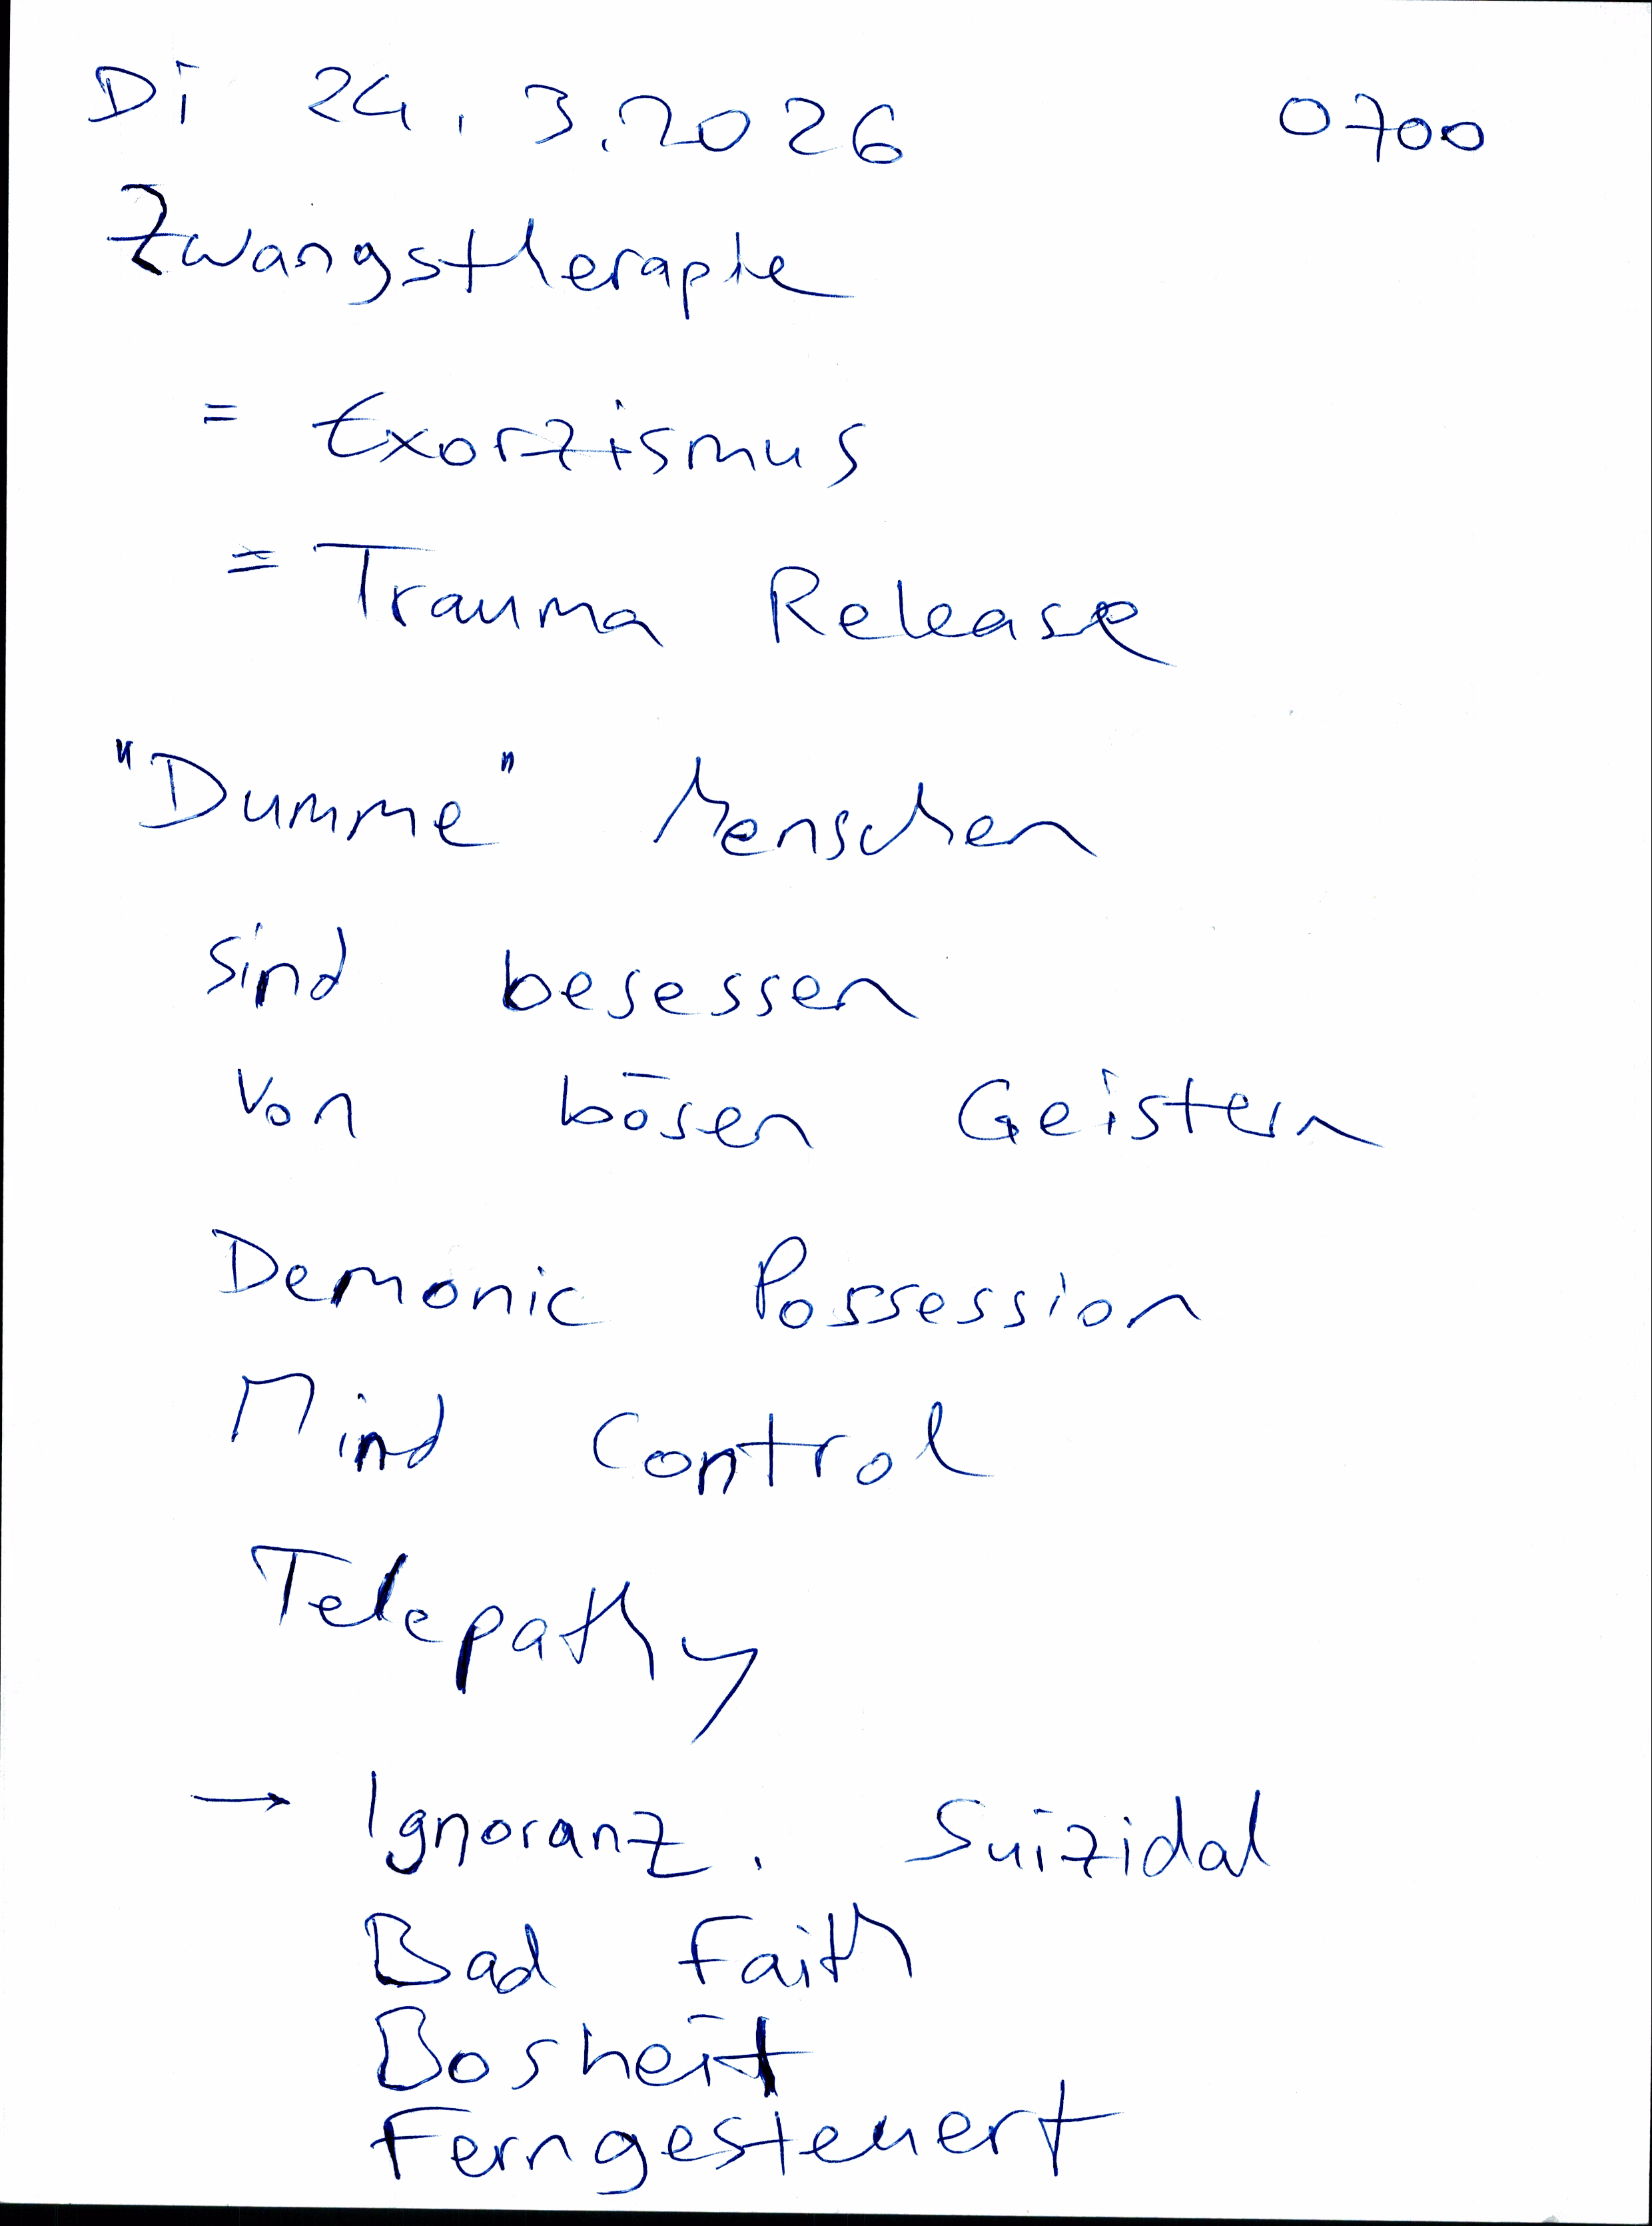 Di 24.3.2026 0700
Zwangstherapie
= Exorzismus
= Trauma Release
"Dumme" Menschen
sind besessen
von bösen Geistern
Demonic Possession
Mind Control
Telepathy
→ Ignoranz. Suizidal
Bad Faith
Bosheit
Ferngesteuert